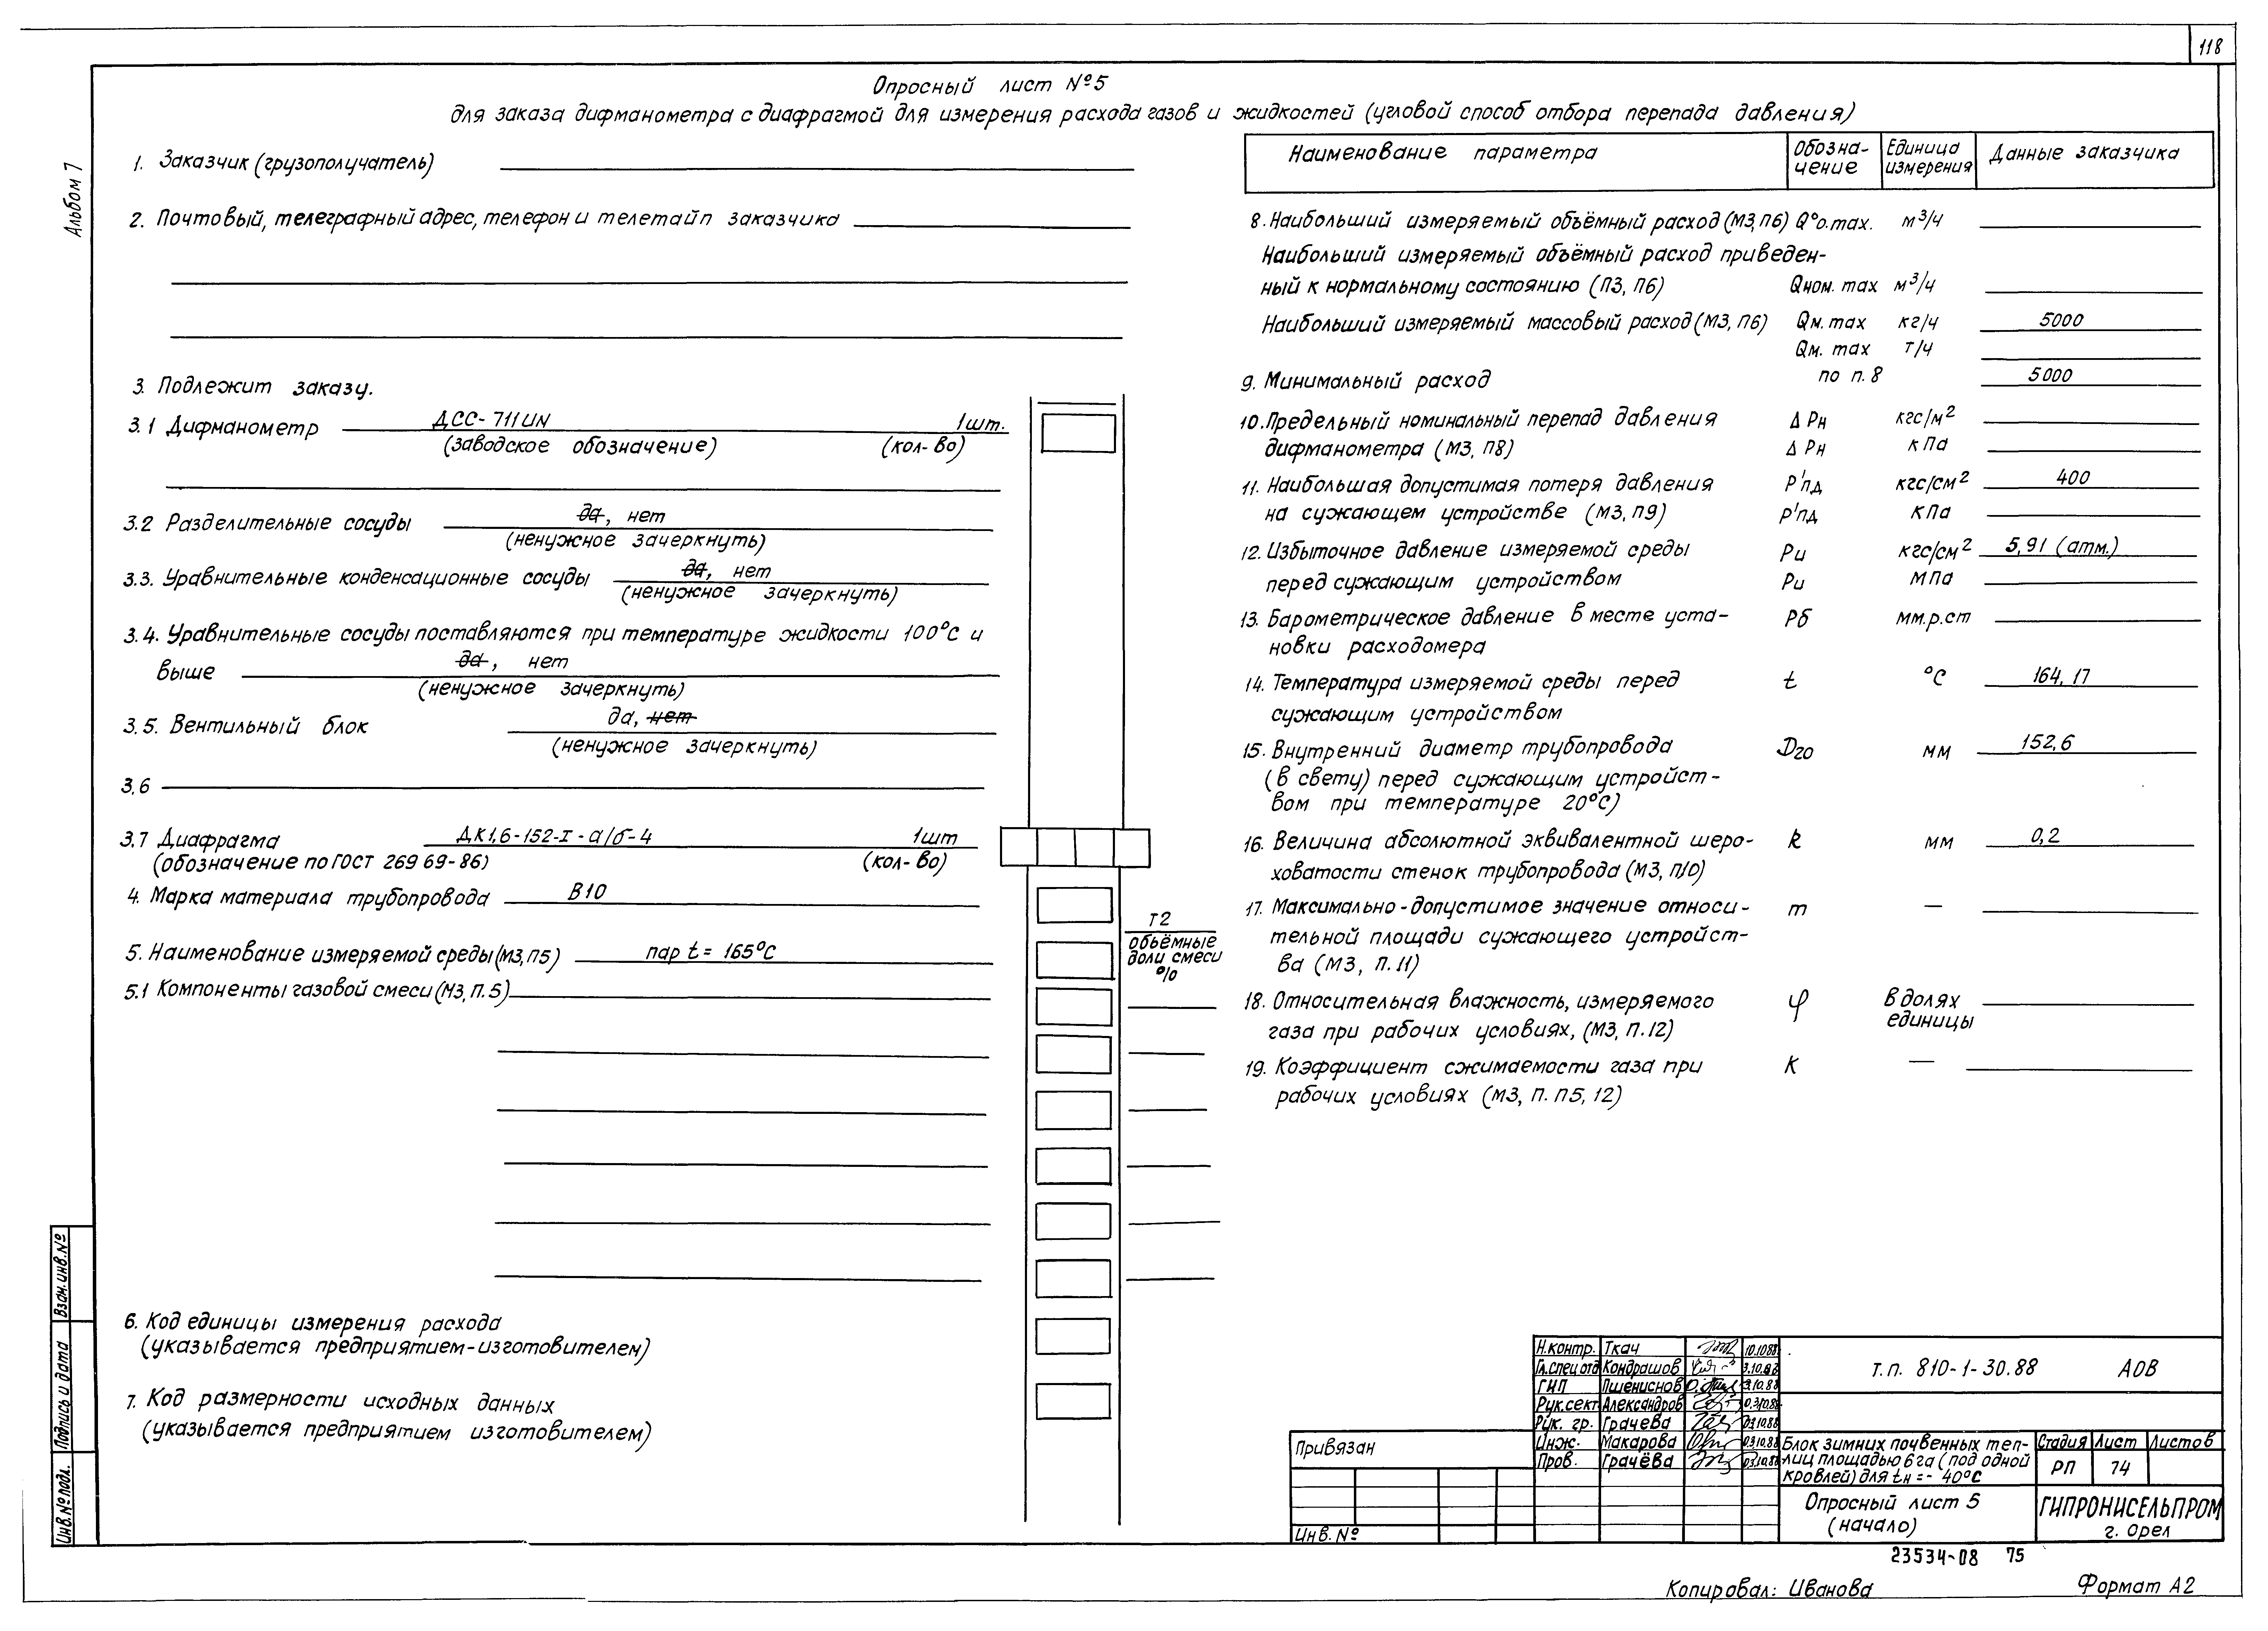 118
Опросный лист №5
для заказа дифманометра с диафрагмой для измерения расхода газов и жидкостей (угловой способ отбора перепада давления)
Альбом 7
1. Заказчик (грузополучатель)
2. Почтовый, телеграфный адрес, телефон и телетайп заказчика
3. Подлежит заказу.
3.1 Дифманометр ДСС-711ИN 1шт.
(заводское обозначение) (кол-во)
3.2 Разделительные сосуды да, нет
(ненужное зачеркнуть)
3.3. Уравнительные конденсационные сосуды да, нет
(ненужное зачеркнуть)
3.4. Уравнительные сосуды поставляются при температуре жидкости 100°С и
выше да, нет
(ненужное зачеркнуть)
3.5. Вентильный блок да, нет
(ненужное зачеркнуть)
3.6
3.7 Диафрагма ДК1,6-152-I-а/б-4 1шт
(обозначение по ГОСТ 26969-86) (кол-во)
4. Марка материала трубопровода В10
5. Наименование измеряемой среды (М3, П5) пар t = 165°С
5.1 Компоненты газовой смеси (М3, П.5)
Т2
объёмные
доли смеси
%
6. Код единицы измерения расхода
(указывается предприятием-изготовителем)
7. Код размерности исходных данных
(указывается предприятием изготовителем)
Наименование параметра
Обозна-
чение
Единица
измерения
Данные заказчика
8. Наибольший измеряемый объёмный расход (М3, П6) Q°о.max. м³/ч
Наибольший измеряемый объёмный расход приведен-
ный к нормальному состоянию (П3, П6) Qном. max м³/ч
Наибольший измеряемый массовый расход (М3, П6) Qм. max кг/ч 5000
Qм. max т/ч
9. Минимальный расход по п. 8 5000
10. Предельный номинальный перепад давления ΔPн кгс/м²
дифманометра (М3, П8) ΔPн кПа
11. Наибольшая допустимая потеря давления P'пд кгс/см² 400
на сужающем устройстве (М3, П9) P'пд кПа
12. Избыточное давление измеряемой среды Pи кгс/см² 5,91 (атм.)
перед сужающим устройством Pи МПа
13. Барометрическое давление в месте уста- Pб мм.р.ст
новки расходомера
14. Температура измеряемой среды перед t °С 164,17
сужающим устройством
15. Внутренний диаметр трубопровода D20 мм 152,6
(в свету) перед сужающим устройст-
вом при температуре 20°С)
16. Величина абсолютной эквивалентной шеро- k мм 0,2
ховатости стенок трубопровода (М3, П10)
17. Максимально-допустимое значение относи- m —
тельной площади сужающего устройст-
ва (М3, П.11)
18. Относительная влажность, измеряемого φ В долях
газа при рабочих условиях, (М3, П.12) единицы
19. Коэффициент сжимаемости газа при К —
рабочих условиях (М3, П. П5, 12)
Н.контр. Ткач 10.10.88
Гл.спец.отд Кондрашов 3.10.88
ГИП Пшениснов 3.10.88
Рук.сект Александров 03.10.88
Рук. гр. Грачева 03.10.88
Инж. Макарова 03.10.88
Пров. Грачёва 03.10.88
т.п. 810-1-30.88 АОВ
Привязан
Инв. №
Блок зимних почвенных теп-
лиц площадью 6 га (под одной
кровлей) для tн = - 40°С
Стадия Лист Листов
РП 74
Опросный лист 5
(начало)
ГИПРОНИСЕЛЬПРОМ
г. Орел
23534-08 75
Копировал: Иванова
Формат А2
Взам. инв. №
Подпись и дата
Инв. № подл.